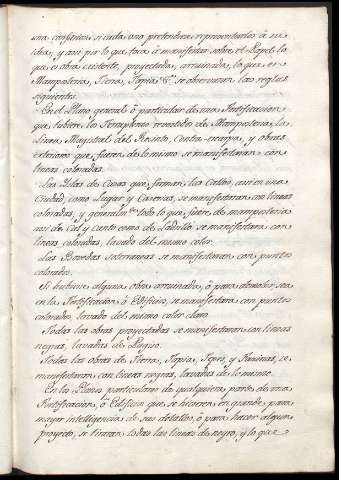 una confusion si cada uno pretendiera representarlas à su
idea, y asi por lo que toca à manifestar sobre el Papel lo
que es obra existente, proyectada, arruinada, lo que es
Mamposteria, Tierra, Tapia &c. se observaran las reglas
siguientes.
En el Plano general ó particular de una Fortificacion
que tubiere los Terraplenes revestido de Mamposteria, la
Linea Magistral del Recinto, Contra-escarpa, y obras
exteriores que fueren de lo mismo se manifestaran con
lineas coloradas.
Las Yslas de Casas que forman las Calles, asi en una
Ciudad, como Lugar y Casernas, se manifestaran con lineas
coloradas, y generalmte todo lo que fuere de mamposteria
asi de Cal y canto como de Ladrillo se manifestara con
lineas coloradas, lavado del mismo color.
Las Bovedas Soterraneas se manifestaran con puntos
colorados.
Si hubiere alguna obra arruinada, ó para demoler sea
en la Fortificacion ó Edificio, se manifestara con puntos
colorados lavado del mismo color claro.
Todas las obras proyectadas se manifestaran con lineas
negras, lavadas de
Todas las obras de Tierra, Tapia, Tepes, y Faxinas, se
manifestaran con lineas negras, lavadas de lo mismo.
En los Planos particulares de qualquiera parte de una
Fortificacion, ó Edificio que se hicieren en grande para
mayor inteligencia de sus detalles, ó para hacer algun
proyecto, se tiraran todas las lineas de negro, y lo que